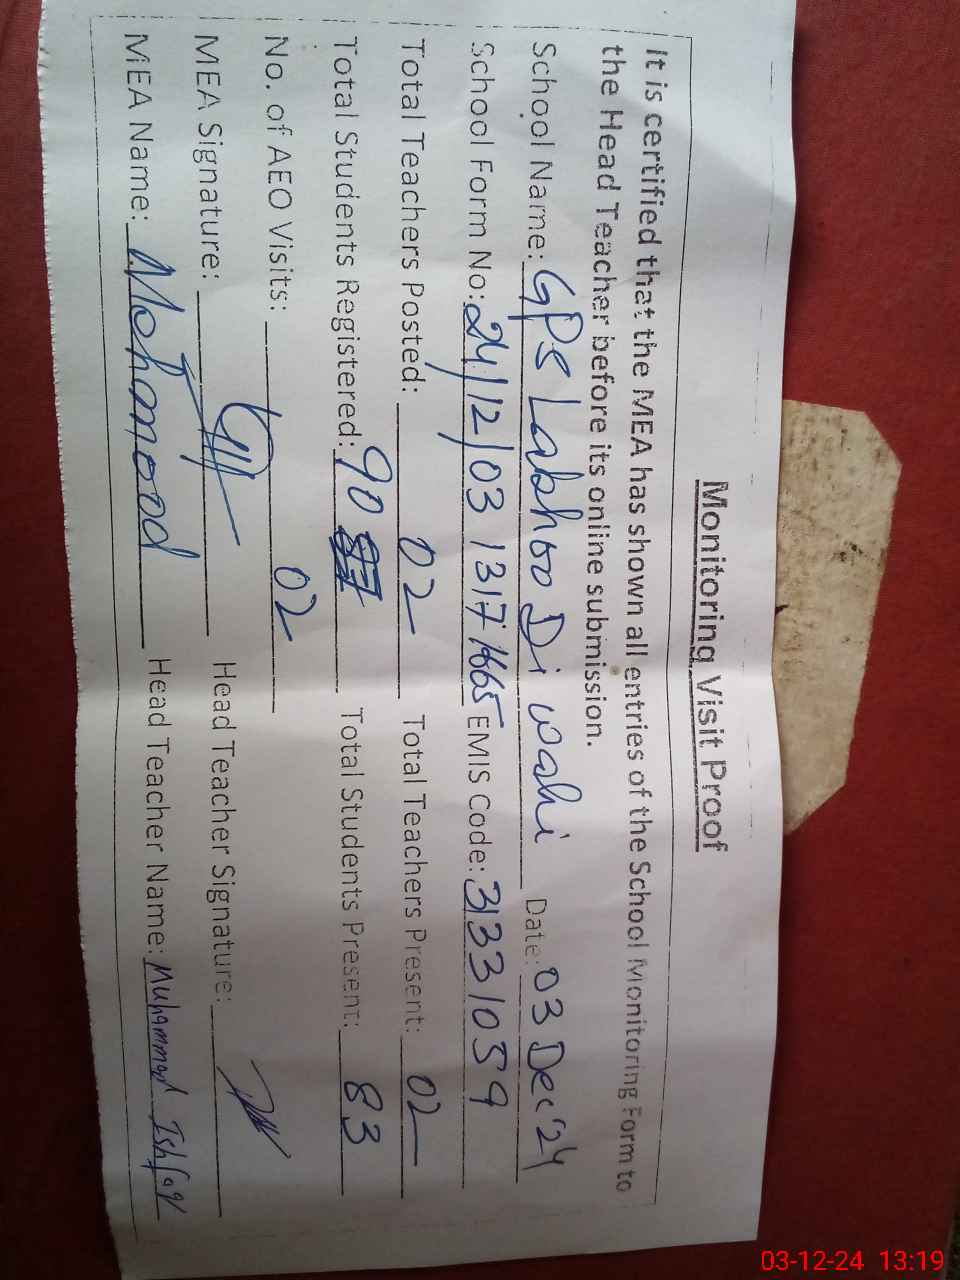 Monitoring Visit Proof
It is certified that the MEA has shown all entries of the School Monitoring Form to
the Head Teacher before its online submission.
School Name: GPS Labhoo Di wahi Date: 03 Dec'24
School Form No: 24/12/03 1317 1665 EMIS Code: 31331059
Total Teachers Posted: 02 Total Teachers Present: 02
Total Students Registered: 90 Total Students Present: 83
No. of AEO Visits: 02
MEA Signature: Head Teacher Signature:
MEA Name: Mehmood Head Teacher Name: Muhammad Ishfaq
03-12-24 13:19